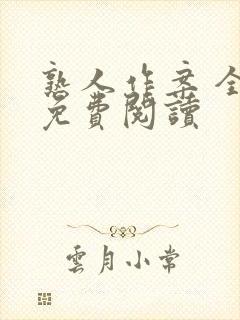 熟人作案全
免費閱讀
雲月小常